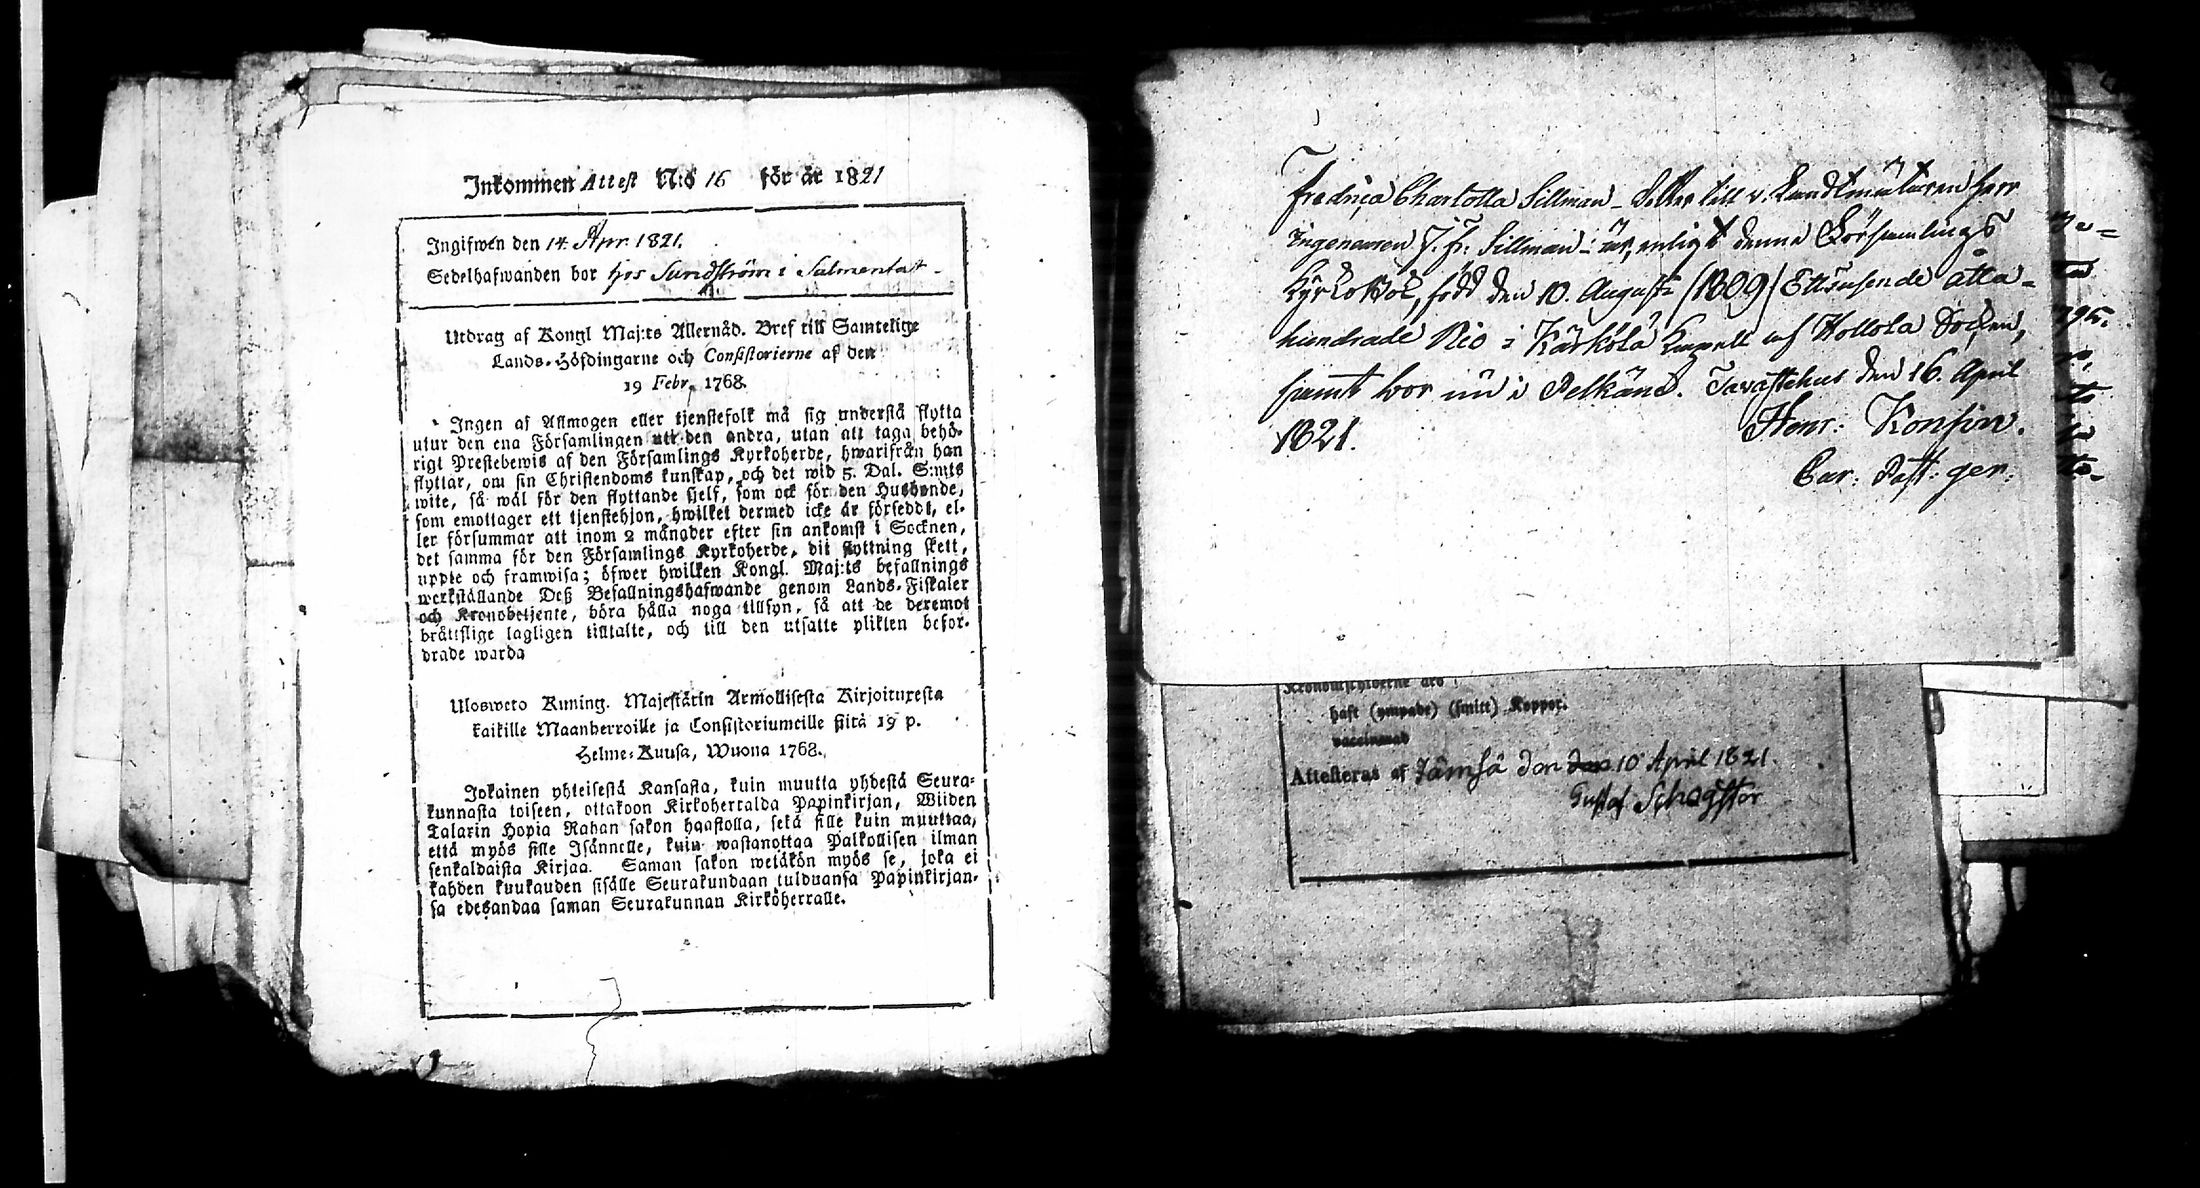 Inkommen Attest N:o 16 för år 1821
Ingifwen den 14. Apr. 1821.
Sedelhafwanden bor hos Sundström i Salmentaka
Utdrag af Kongl Maj:ts Allernåd. Bref till Samtelige
Lands-Höfdingarne och Consistorierne af den
19 Febr. 1768.
Ingen af Allmogen eller tjenstefolk må sig understå flytta
utur den ena Församlingen uti den andra, utan att taga behö-
rigt Prestebewis af den Församlings Kyrkoherde, hwarifrån han
flyttar, om sin Christendoms kunskap, och det wid 5. Dal. S:mts
wite, så wäl för den flyttande sjelf, som ock för den Husbonde,
som emottager ett tjenstehjon, hwilket dermed icke är försedt, el-
ler försummar att inom 2 månader efter sin ankomst i Socknen,
det samma för den Församlings Kyrkoherde, dit flyttning skett,
uppte och framwisa; öfwer hwilken Kongl. Maj:ts befallnings
werkställande Deß Befallningshafwande genom Lands-Fiskaler
och Kronobetjente, böra hålla noga tillsyn, så att de deremot
bråttslige lagligen tilltalte, och till den utsatte plikten befor-
drade warda
Ulosweto Kuning. Majestärin Armollisesta Kirjoituxesta
kaikille Maanherroille ja Consistoriumeille siitä 19 p.
Helme-Kuusa, Wuona 1768.
Jokainen yhteisestä Kansasta, kuin muutta yhdestä Seura-
kunnasta toiseen, ottakoon Kirkoherralda Papinkirjan, Wiiden
Talarin Hopia Rahan sakon haastolla, sekä sille kuin muuttaa,
että myös sille Isännelle, kuin wastanottaa Palkollisen ilman
senkaldaista Kirjaa. Saman sakon wetäkön myös se, joka ei
kahden kuukauden sisälle Seurakundaan tulduansa Papinkirjan-
sa edesandaa saman Seurakunnan Kirkoherralle.
Fredrica Charlotta Sillman - Dotter till v. Landtmätaren Herr
Ingenieuren J. Fr: Sillman - är, enligt denna Församlings
Kyrkobok, född den 10. Augusti (1809) Ettusende åtta-
hundrade Nio i Kärkölä Kapell af Hollola Socken,
samt bor nu i Pelkäne. Tavastehus den 16. April
1821.
Henr: Konsin.
Cur: Past: ger:
haft (ympade) (smitt) Koppor.
vaccinerad
Attesteras af Jämsä den den 10 April 1821.
Gustaf